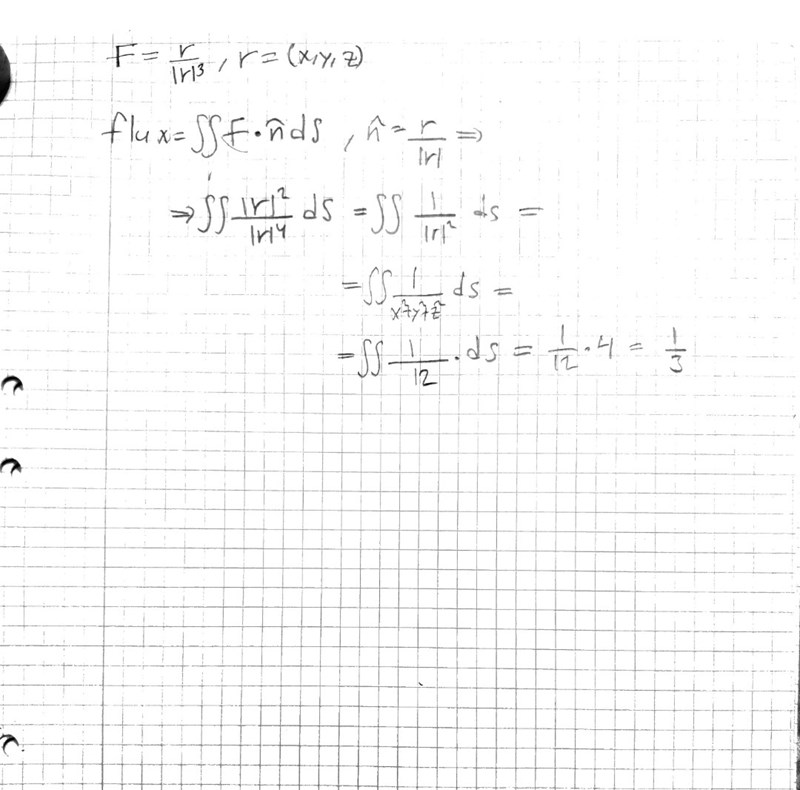 F = r/|r|³, r = (x,y,z)
flux = ∬F·n̂ds, n̂ = r/|r| ⇒
⇒ ∬ |r|²/|r|⁴ ds = ∬ 1/|r|² ds =
= ∬ 1/(x²+y²+z²) ds =
= ∬ 1/12 · ds = 1/12 · 4 = 1/3